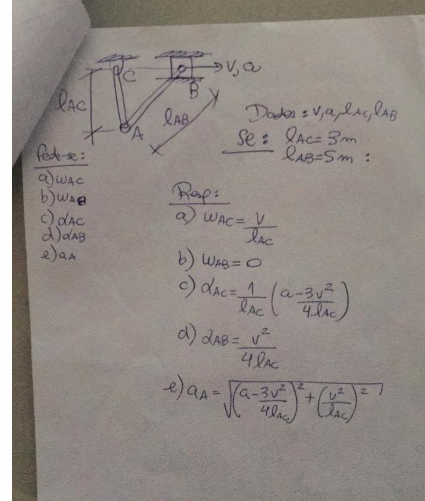 C
V, a
B
lAC
A
lAB
Dados: V, a, lAC, lAB
Se: lAC = 3m
lAB = 5m :
Pede-se:
a) ωAC
b) ωAB
c) αAC
d) αAB
e) aA
Resp:
a) ωAC = V/lAC
b) ωAB = 0
c) αAC = 1/lAC (a - 3v²/4lAC)
d) αAB = v²/4lAC
e) aA = √((a - 3v²/4lAC)² + (v²/lAC)²)